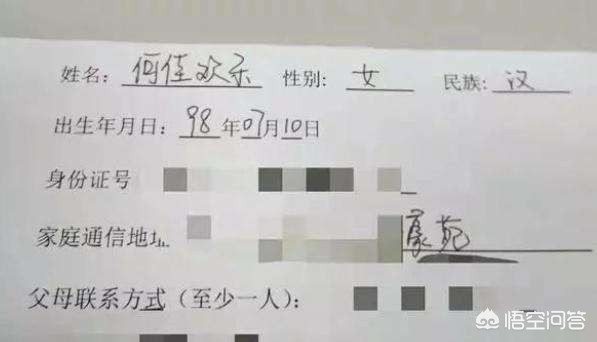 姓名: 何佳欢乐 性别: 女 民族: 汉
出生年月日: 98 年 07 月 10 日
身份证号
家庭通信地址 苑
父母联系方式（至少一人）:
悟空问答